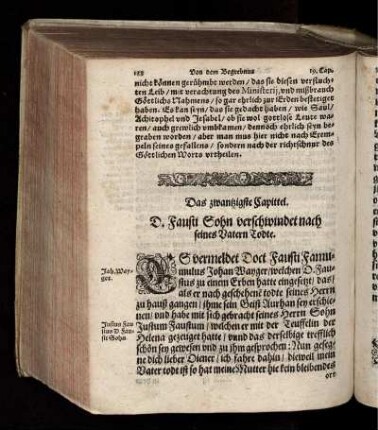 188 Von dem Begrebnus 19. Cap.
nicht können gerühmbt werden / das sie diesen verfluch-
ten Leib / mit verachtung des Ministerij, vnd mißbrauch
Göttlichs Nahmens / so gar ehrlich zur Erden bestetiget
haben. Es kan seyn / das sie gedacht haben / wie Saul /
Achitophel vnd Jesabel / ob sie wol gottlose Leute wa-
ren / auch grewlich vmbkamen / dennoch ehrlich seyn be-
graben worden / aber man mus hier nicht nach Exem-
peln seines gefallens / sondern nach der richtschnur des
Göttlichen Worts vrtheilen.
Das zwantzigste Capittel.
D. Fausti Sohn verschwindet nach
seines Vatern Todte.
ES vermeldet Doct Fausti Famu-
Joh. Way-
ger.
mulus Johan Wayger / welchen D. Fau-
stus zu einen Erben hatte eingesetzt / das /
als er nach geschehenē todte seines Herrn
zu hauß gangen / ihme sein Geist Aurhan sey erschie-
nen / vnd habe mit sich gebracht seines Herrn Sohn
Justum Faustum / welchen er mit der Teuffelin der
Justus Fau
stus D Fau-
sti Sohn.
Helena gezeiget hatte / vnd das derselbige trefflich
schön sey gewesen vnd zu ihm gesprochen: Nun geseg-
ne dich lieber Diener / ich fahre dahin / dieweil mein
Vater todt ist so hat meine Mutter hie kein bleibendes
ort